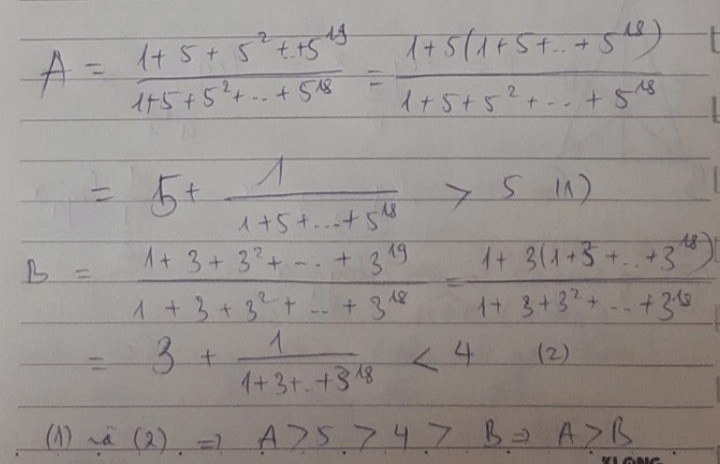 A = (1 + 5 + 5² + .. + 5¹⁹)/(1+5+5²+...+5¹⁸) = (1+5(1+5+..+5¹⁸))/(1+5+5²+...+5¹⁸)
= 5 + 1/(1+5+...+5¹⁸) > 5 (1)
B = (1+3+3²+...+3¹⁹)/(1+3+3²+...+3¹⁸) = (1+3(1+3+..+3¹⁸))/(1+3+3²+...+3¹⁸)
= 3 + 1/(1+3+..+3¹⁸) < 4 (2)
(1) và (2) => A > 5 > 4 > B => A > B